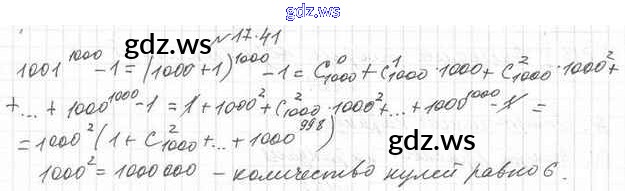 gdz.ws
№17.41
gdz.ws
1001^1000 - 1 = (1000+1)^1000 - 1 = C_1000^0 + C_1000^1 · 1000 + C_1000^2 · 1000^2 +
+ ... + 1000^1000 - 1 = 1 + 1000^2 + C_1000^2 · 1000^2 + ... + 1000^1000 - 1 =
= 1000^2 (1 + C_1000^2 + ... + 1000^998)
gdz.ws
1000^2 = 1000 000 – количество нулей равно 6.
gdz.ws